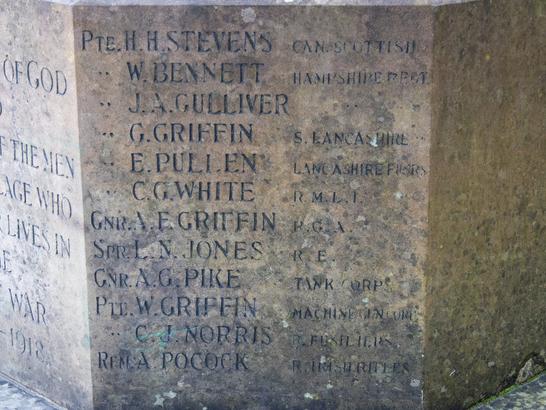 OF GOD
THE MEN
WHO
LIVES IN
WAR
1918
PTE. H. H. STEVENS CAN. SCOTTISH
" W. BENNETT HAMPSHIRE REGT.
" J. A. GULLIVER "
" G. GRIFFIN S. LANCASHIRE "
" E. PULLEN LANCASHIRE FUSRS
" C. G. WHITE R. M. L. I.
GNR. A. E. GRIFFIN R. G. A.
SPR. L. N. JONES R. E.
GNR. A. G. PIKE TANK CORPS.
PTE. W. GRIFFIN MACHINE GUN CORPS
" C. J. NORRIS R. FUSILIERS.
RFN. A. POCOCK R. IRISH RIFLES